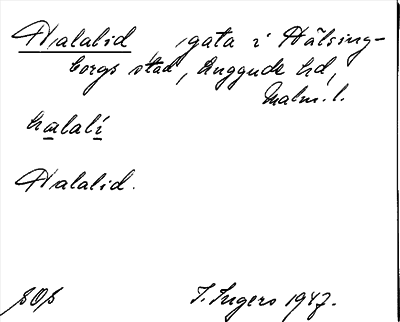 Halalid, gata i Hälsing-
borgs stad, Luggude hd,
Malm. l.
halalí
Halalid.
I. Ingers 1947.